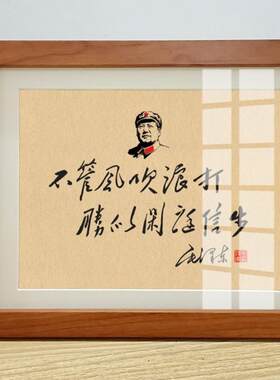 不管风吹浪打
勝似闲庭信步
毛泽东